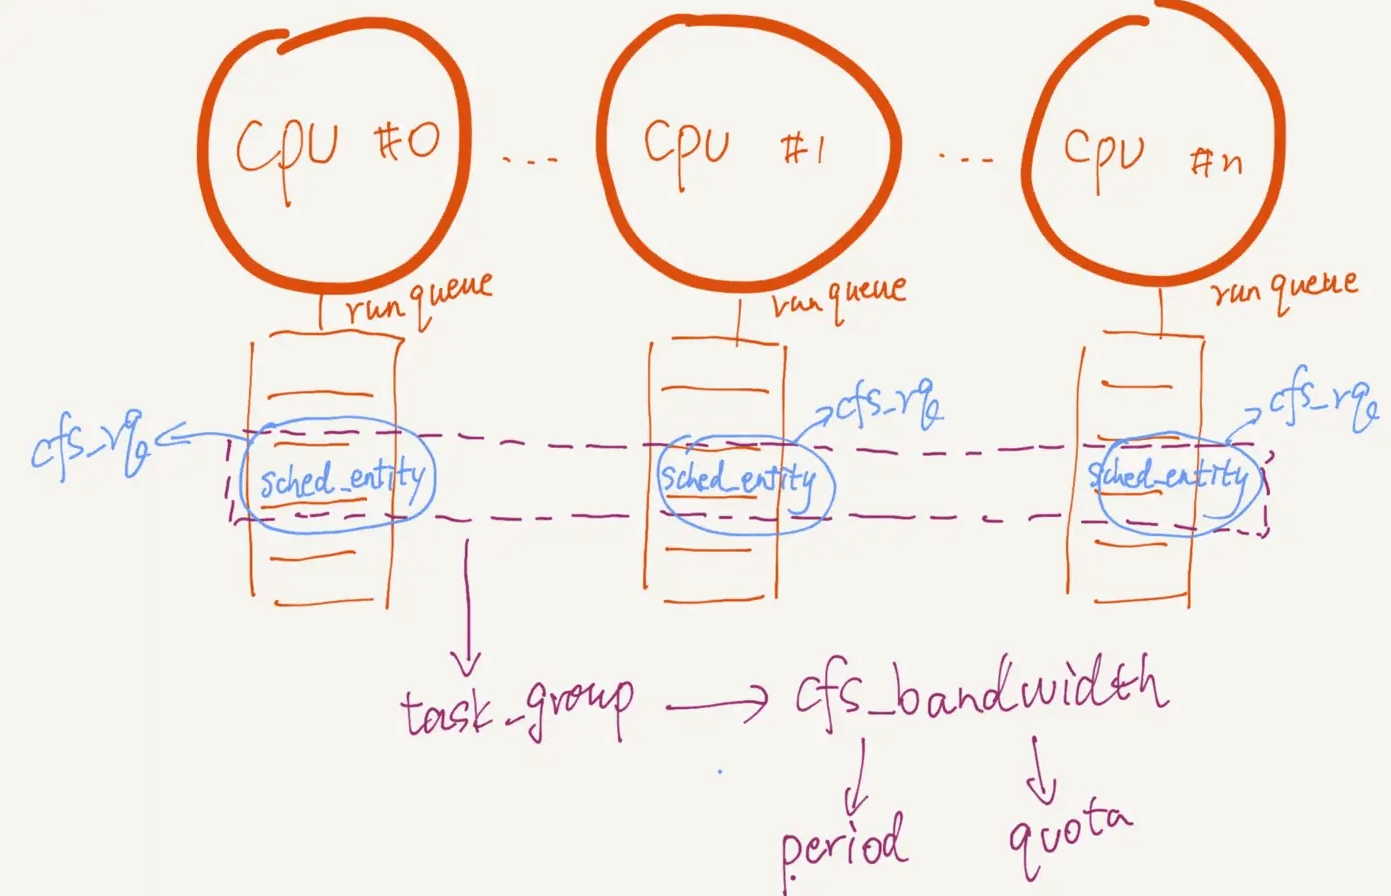 CPU #0 ... CPU #1 ... CPU #n
runqueue runqueue runqueue
cfs_rq cfs_rq cfs_rq
sched_entity sched_entity sched_entity
task_group cfs_bandwidth
period quota